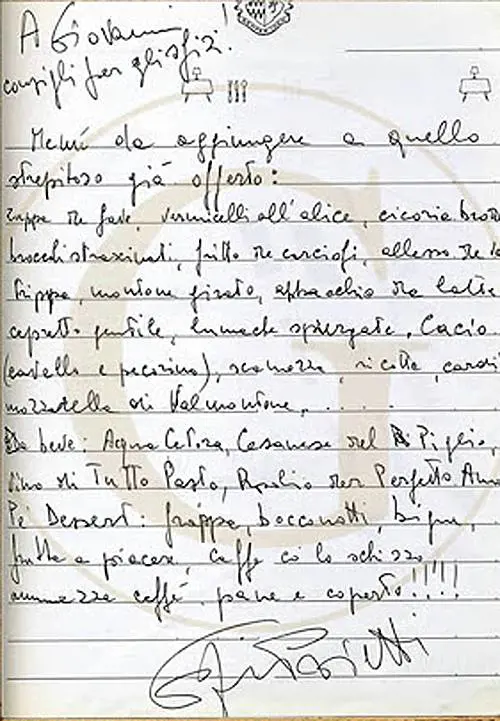 A Giovanni
consigli per gli sfizi.
Menú da aggiungere a quello
strepitoso già offerto:
zuppa de fave, vermicelli all'alice, cicoria
broccoli strascinati, fritto de carciofi, allesso de
trippa, montone, abbacchio da latte
capretto gentile, lumache, Cacio
(cavallo e pecorino), scamozza, ricotta,
mozzatella di Valmontone, .....
Da beve: Acqua Cetosa, Cesanese del Piglio,
vino di Tutto Pasto, Rosolio der Perfetto
Pe' Dessert: frappe, bocconotti, bignè,
frutta a piacere, caffè co lo schizzo
ammazza caffé, pane e coperto!!!!
G